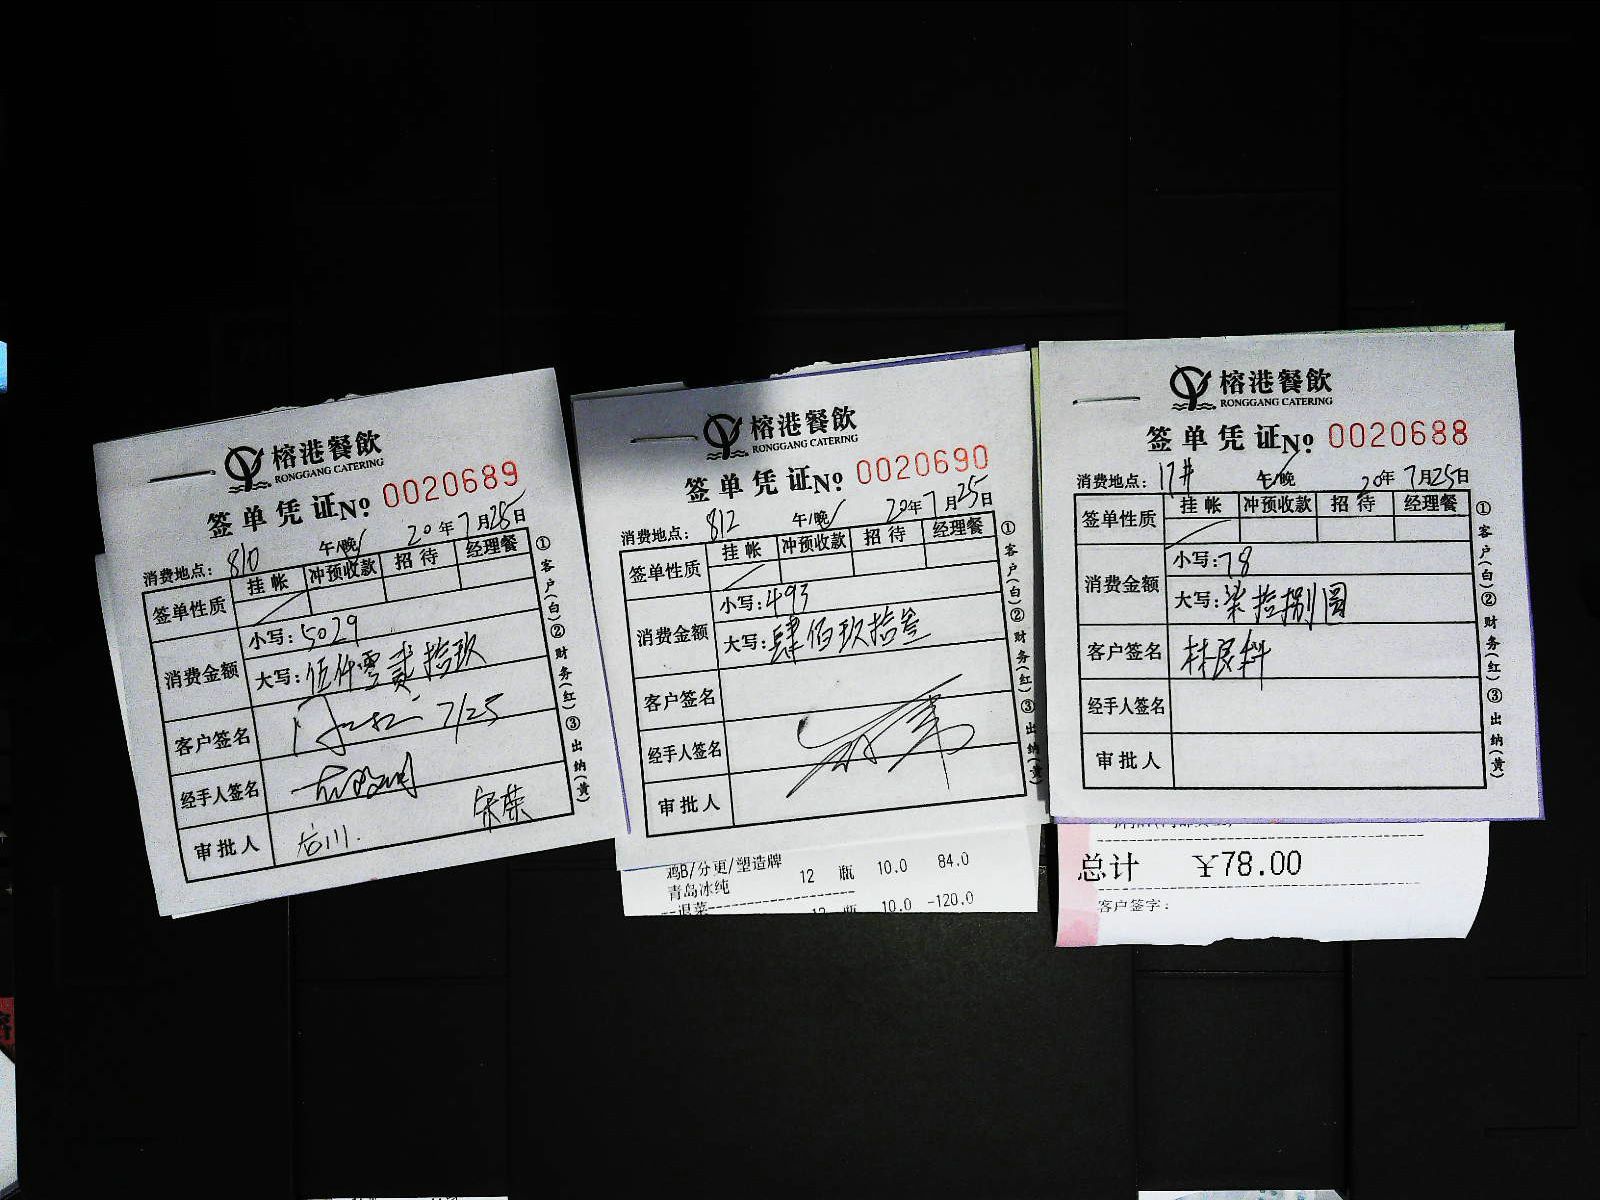 榕港餐飲
RONGGANG CATERING
签单凭证 No 0020689
消费地点: 810 午/晚 20年7月25日
签单性质 挂帐 冲预收款 招待 经理餐
消费金额
小写: 5029
大写: 伍仟零贰拾玖
客户签名 7/25
经手人签名
审批人
①客户(白)②财务(红)③出纳(黄)
榕港餐飲
RONGGANG CATERING
签单凭证 No 0020690
消费地点: 812 午/晚 20年7月25日
签单性质 挂帐 冲预收款 招待 经理餐
消费金额
小写: 493
大写: 肆佰玖拾叁
客户签名
经手人签名
审批人
①客户(白)②财务(红)③出纳(黄)
鸡B/分更/塑造牌 84.0
青岛冰纯 12 瓶 10.0
--退菜
12 瓶 10.0 -120.0
榕港餐飲
RONGGANG CATERING
签单凭证 No 0020688
消费地点: 17# 午/晚 20年7月25日
签单性质 挂帐 冲预收款 招待 经理餐
消费金额
小写: 78
大写: 柒拾捌圆
客户签名 林民科
经手人签名
审批人
①客户(白)②财务(红)③出纳(黄)
总计 ¥78.00
客户签字: